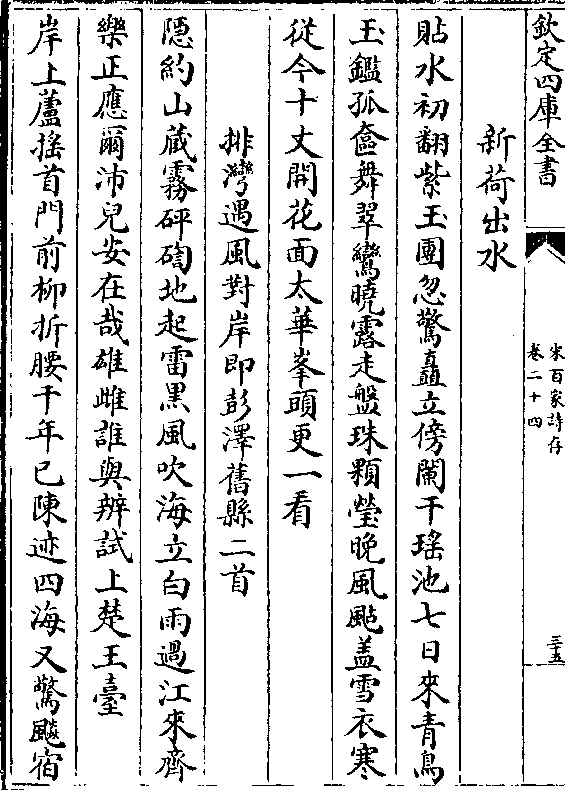 欽定四庫全書
宋百家詩存
卷二十四
三十五
新荷出水
貼水初翻紫玉團忽驚矗立傍闌干瑤池七日來青鳥
玉鑑孤奩舞翠鸞曉露走盤珠顆瑩晚風颭盖雪衣寒
從今十丈開花面太華峯頭更一看
排灣遇風對岸即彭澤舊縣二首
隱約山藏霧砰磕地起雷黑風吹海立白雨過江來齊
樂正應爾沛兒安在哉雄雌誰與辨試上楚王臺
岸上蘆搖首門前柳折腰千年已陳迹四海又驚飇宿